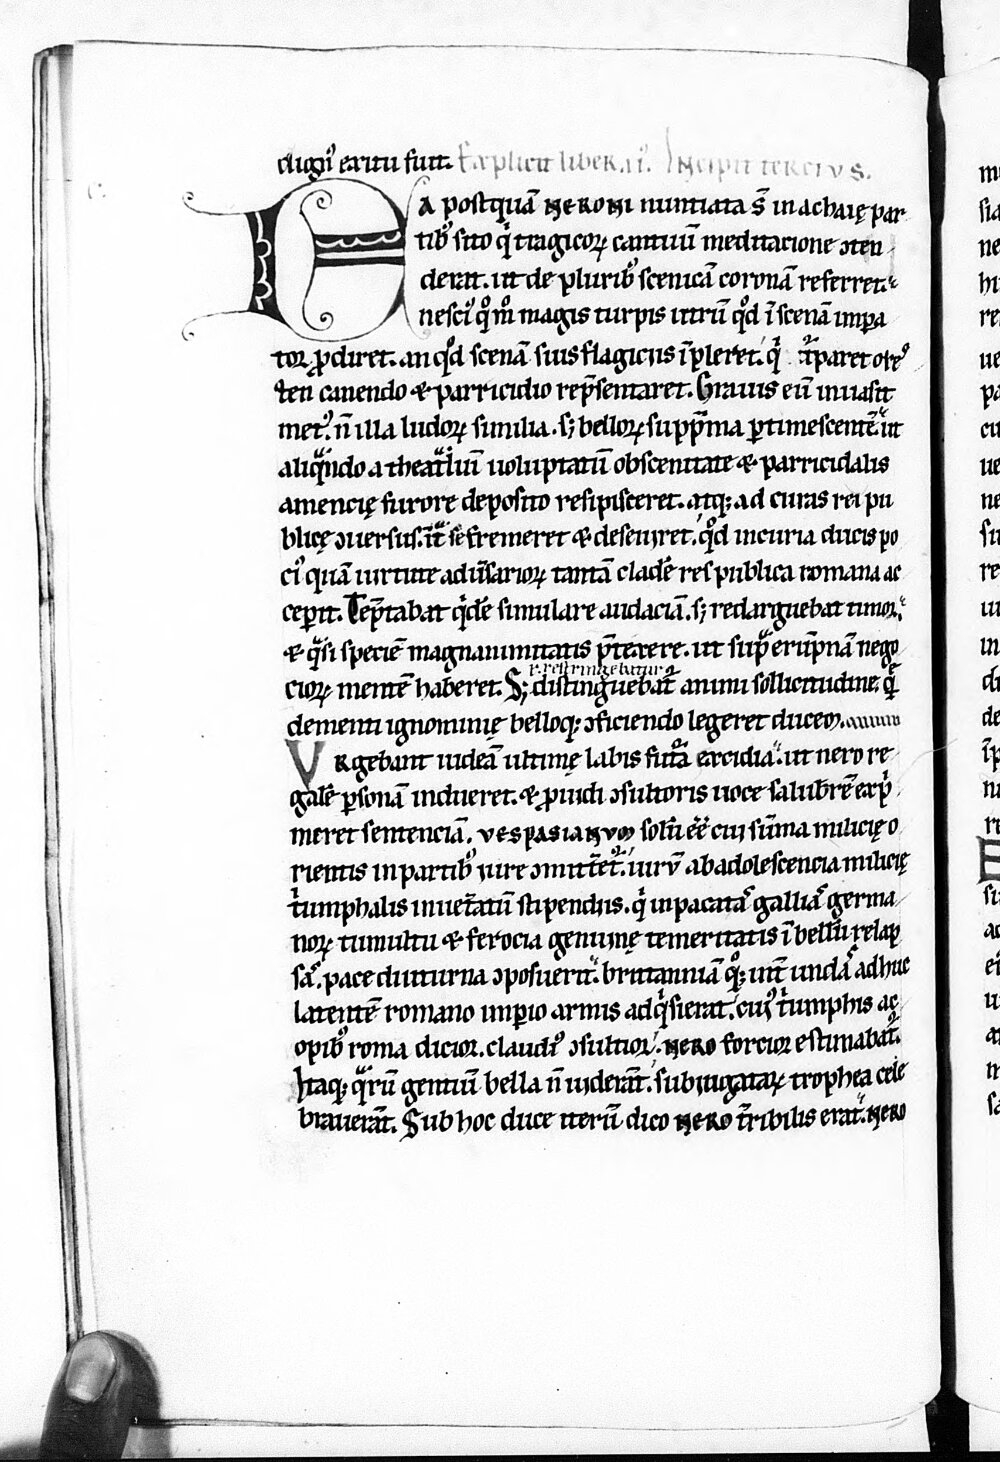 dign᷒ exitu fuit. Explicit liber .ii. Incipit tercius.
Ea postquā NERONI nuntiata s̄ in achaię par
tib᷒ sito q̇ tragicoꝝ cantuū meditatione ɔten
derat. ut de plurib᷒ scenicā coronā referret.
nesci᷒ magis turpis utrū qd̊ ī scenā impa
tor ꝓdiret. an qd̊ scenā suis flagiciis īpleret. q̇
ten canendo & parricidio rep̄sentaret. Grauis eū inuasit
met᷒. n̄ illa ludoꝝ similia. sꝫ belloꝝ supp̄ma ꝑtimescentē. ut
aliqͣndo a theatͣliū uoluptatū obscenitate & parricidalis
amencię furore deposito resipisceret. atqꝫ ad curas rei pu
blicę ɔuersus. īt͛ se fremeret & deseuiret. qd̊ incuria ducis po
ci᷒ quā uirtute adu͛sarioꝝ tantā cladē res publica romana ac
cepit. Tēptabat qͥdē simulare audaciā. sꝫ redarguebat timor.
& qͣsi speciē magnanimitatis p̄texere. ut supͣ erūpnā nego
r. restringebatur
cioꝝ mentē haberet. Sꝫ distinguebat᷑ animi sollicitudine. qͣ
dementi ignominię belloqꝫ ɔficiendo legeret ducem.
Vrgebant iudeā ultimę labis futͣa excidia. ut nero re
galē ꝑsonā indueret. & ꝓuidi ɔsultoris uoce salubrē exp̄
meret sentenciā. VESPASIANUM solū e͞e͞ cui sūma milicię o
rientis in partib᷒ iure ɔmittet᷑. uirū ab adolescencia milicię
tͥumphalis inuet͛atū stipendiis. qͥ inpacatā galliā germa
noꝝ tumultu & ferocia genuinę temeritatis ī bellū relap
sā. pace diuturna ɔposuerit. britanniā qꝫ int͛ undas adhuc
latentē romano imꝑio armis adqͥsierat. cui᷒ tͥumphis ac
opib᷒ roma dicior. claudi᷒ ɔsultior. NERO forcior estimabat᷑.
Itaqꝫ qͣrū gentiū bella n̄ uiderāt. subiugataꝝ trophea cele
brauerāt. Sub hoc duce iterū dico NERO t͛ribilis erat. NERO